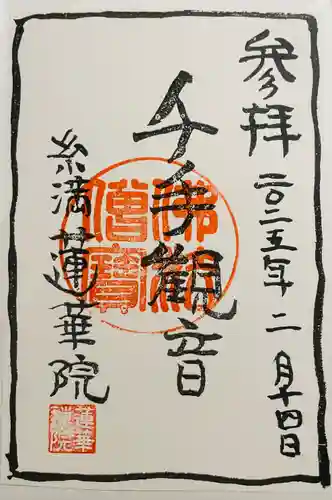 参拝
二〇二五年二月十四日
千手観音
糸満蓮華院
佛法僧寶
蓮華院